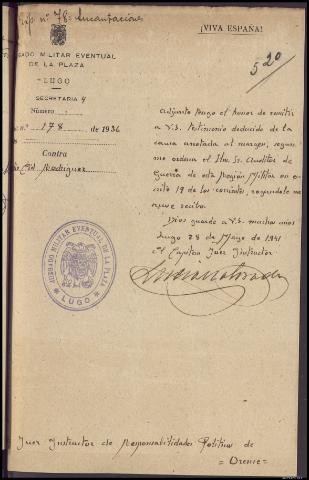 Exp. nº 78. Incautaciones
¡VIVA ESPAÑA!
520
JUZGADO MILITAR EVENTUAL
DE LA PLAZA
LUGO
SECRETARIA 4
Número
178 de 1936
Contra
Rodriguez
Adjunto tengo el honor de remitir
a V.S. testimonio deducido de la
causa anotada al margen, segun
me ordena el Ilmo. Sr. Auditor de
Guerra de esta Region Militar en es-
crito 19 de los corrientes, rogandole me
acuse recibo.
Dios guarde a V.S. muchos años
Lugo 28 de Mayo de 1941
El Capitan Juez Instructor
JUZGADO MILITAR EVENTUAL DE LA PLAZA
LUGO
Juez Instructor de Responsabilidades Politicas de
= Orense =